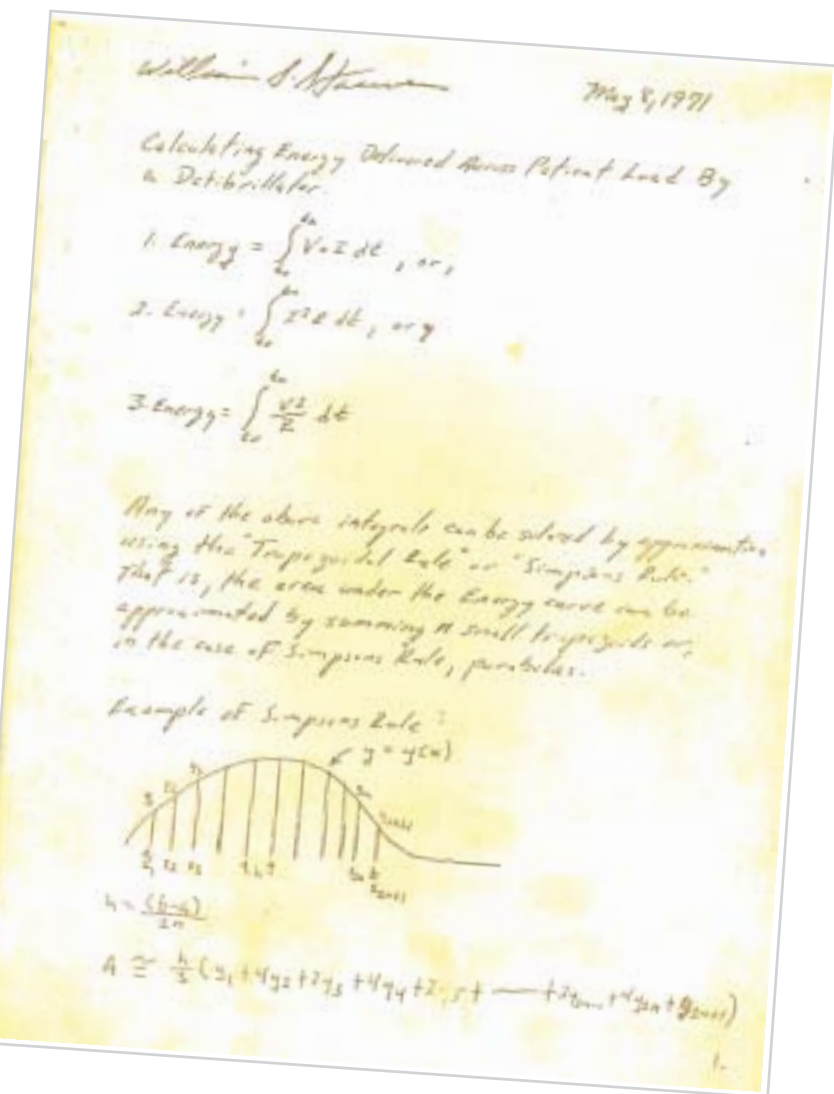 William S.
May 8, 1971
Calculating Energy Delivered Across Patient Load By
a Defibrillator.
1. Energy = ∫ V·I dt, or,
2. Energy = ∫ I²R dt, or
3. Energy = ∫ V²/R dt
Any of the above integrals can be solved by approximation
using the "Trapezoidal Rule" or "Simpsons Rule."
That is, the area under the Energy curve can be
approximated by summing n small trapezoids or,
in the case of Simpsons Rule, parabolas.
Example of Simpsons Rule:
y = y(x)
h = (b-a)/2n
A ≅ h/3 (y1 + 4y2 + 2y3 + 4y4 + 2y5 + — + 4y2n + y2n+1)
1.